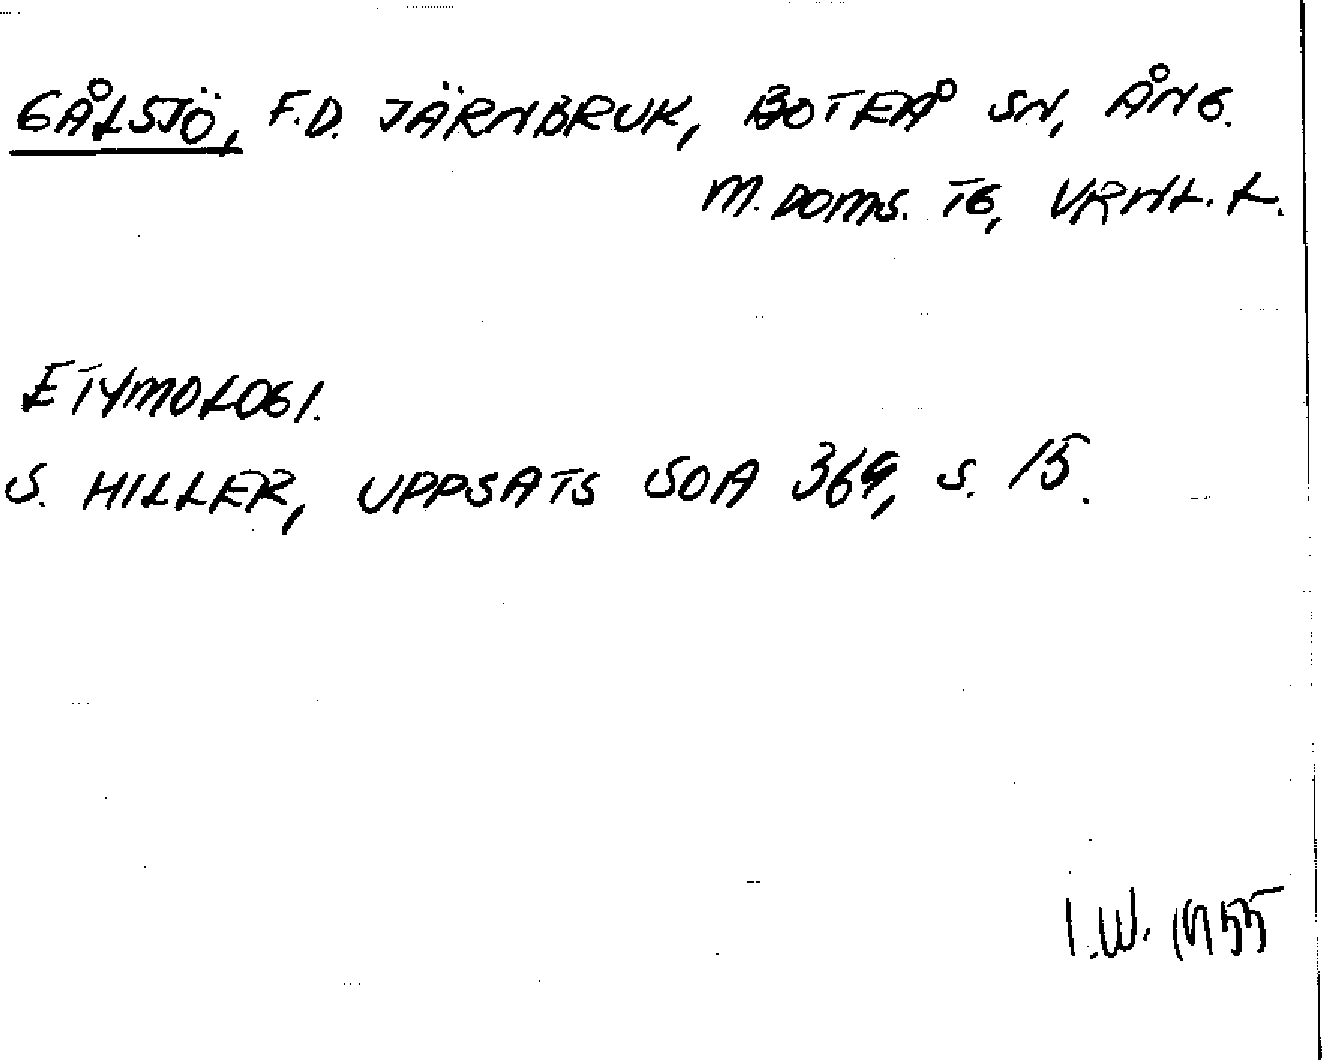 GÅLSJÖ, F.D. JÄRNBRUK, BOTEÅ SN, ÅNG.
M. DOMS. TG, VRNL. L.
ETYMOLOGI.
S. HILLER, UPPSATS SOA 369, S. 15.
I.W. 1955